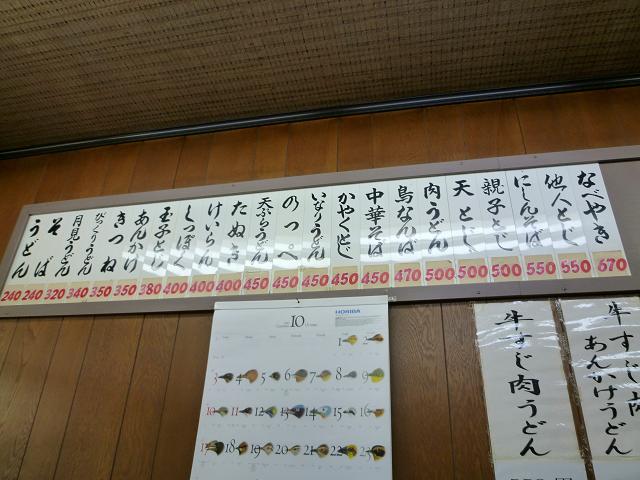 なべやき 670
他人とじ 550
にしんそば 550
親子とじ 500
天とじ 500
肉うどん 500
鳥なんば 470
中華そば 450
かやくとじ 450
いなりうどん 450
のっぺ 450
天ぷらうどん 450
たぬき 400
けいらん 400
しっぽく 400
玉子とじ 380
あんかけ 350
きつね 350
びっくりうどん 340
月見うどん 320
そば 240
うどん 240
10
HORIBA
1 2
3 4 5 6 7 8 9
10 11 12 13 14 15 16
17 18 19 20 21 22 23
牛すじ肉うどん
牛すじ肉
あんかけうどん